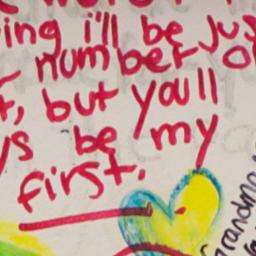 ing i'll be jus
number o
, but you'll
s be my
first.
grandma